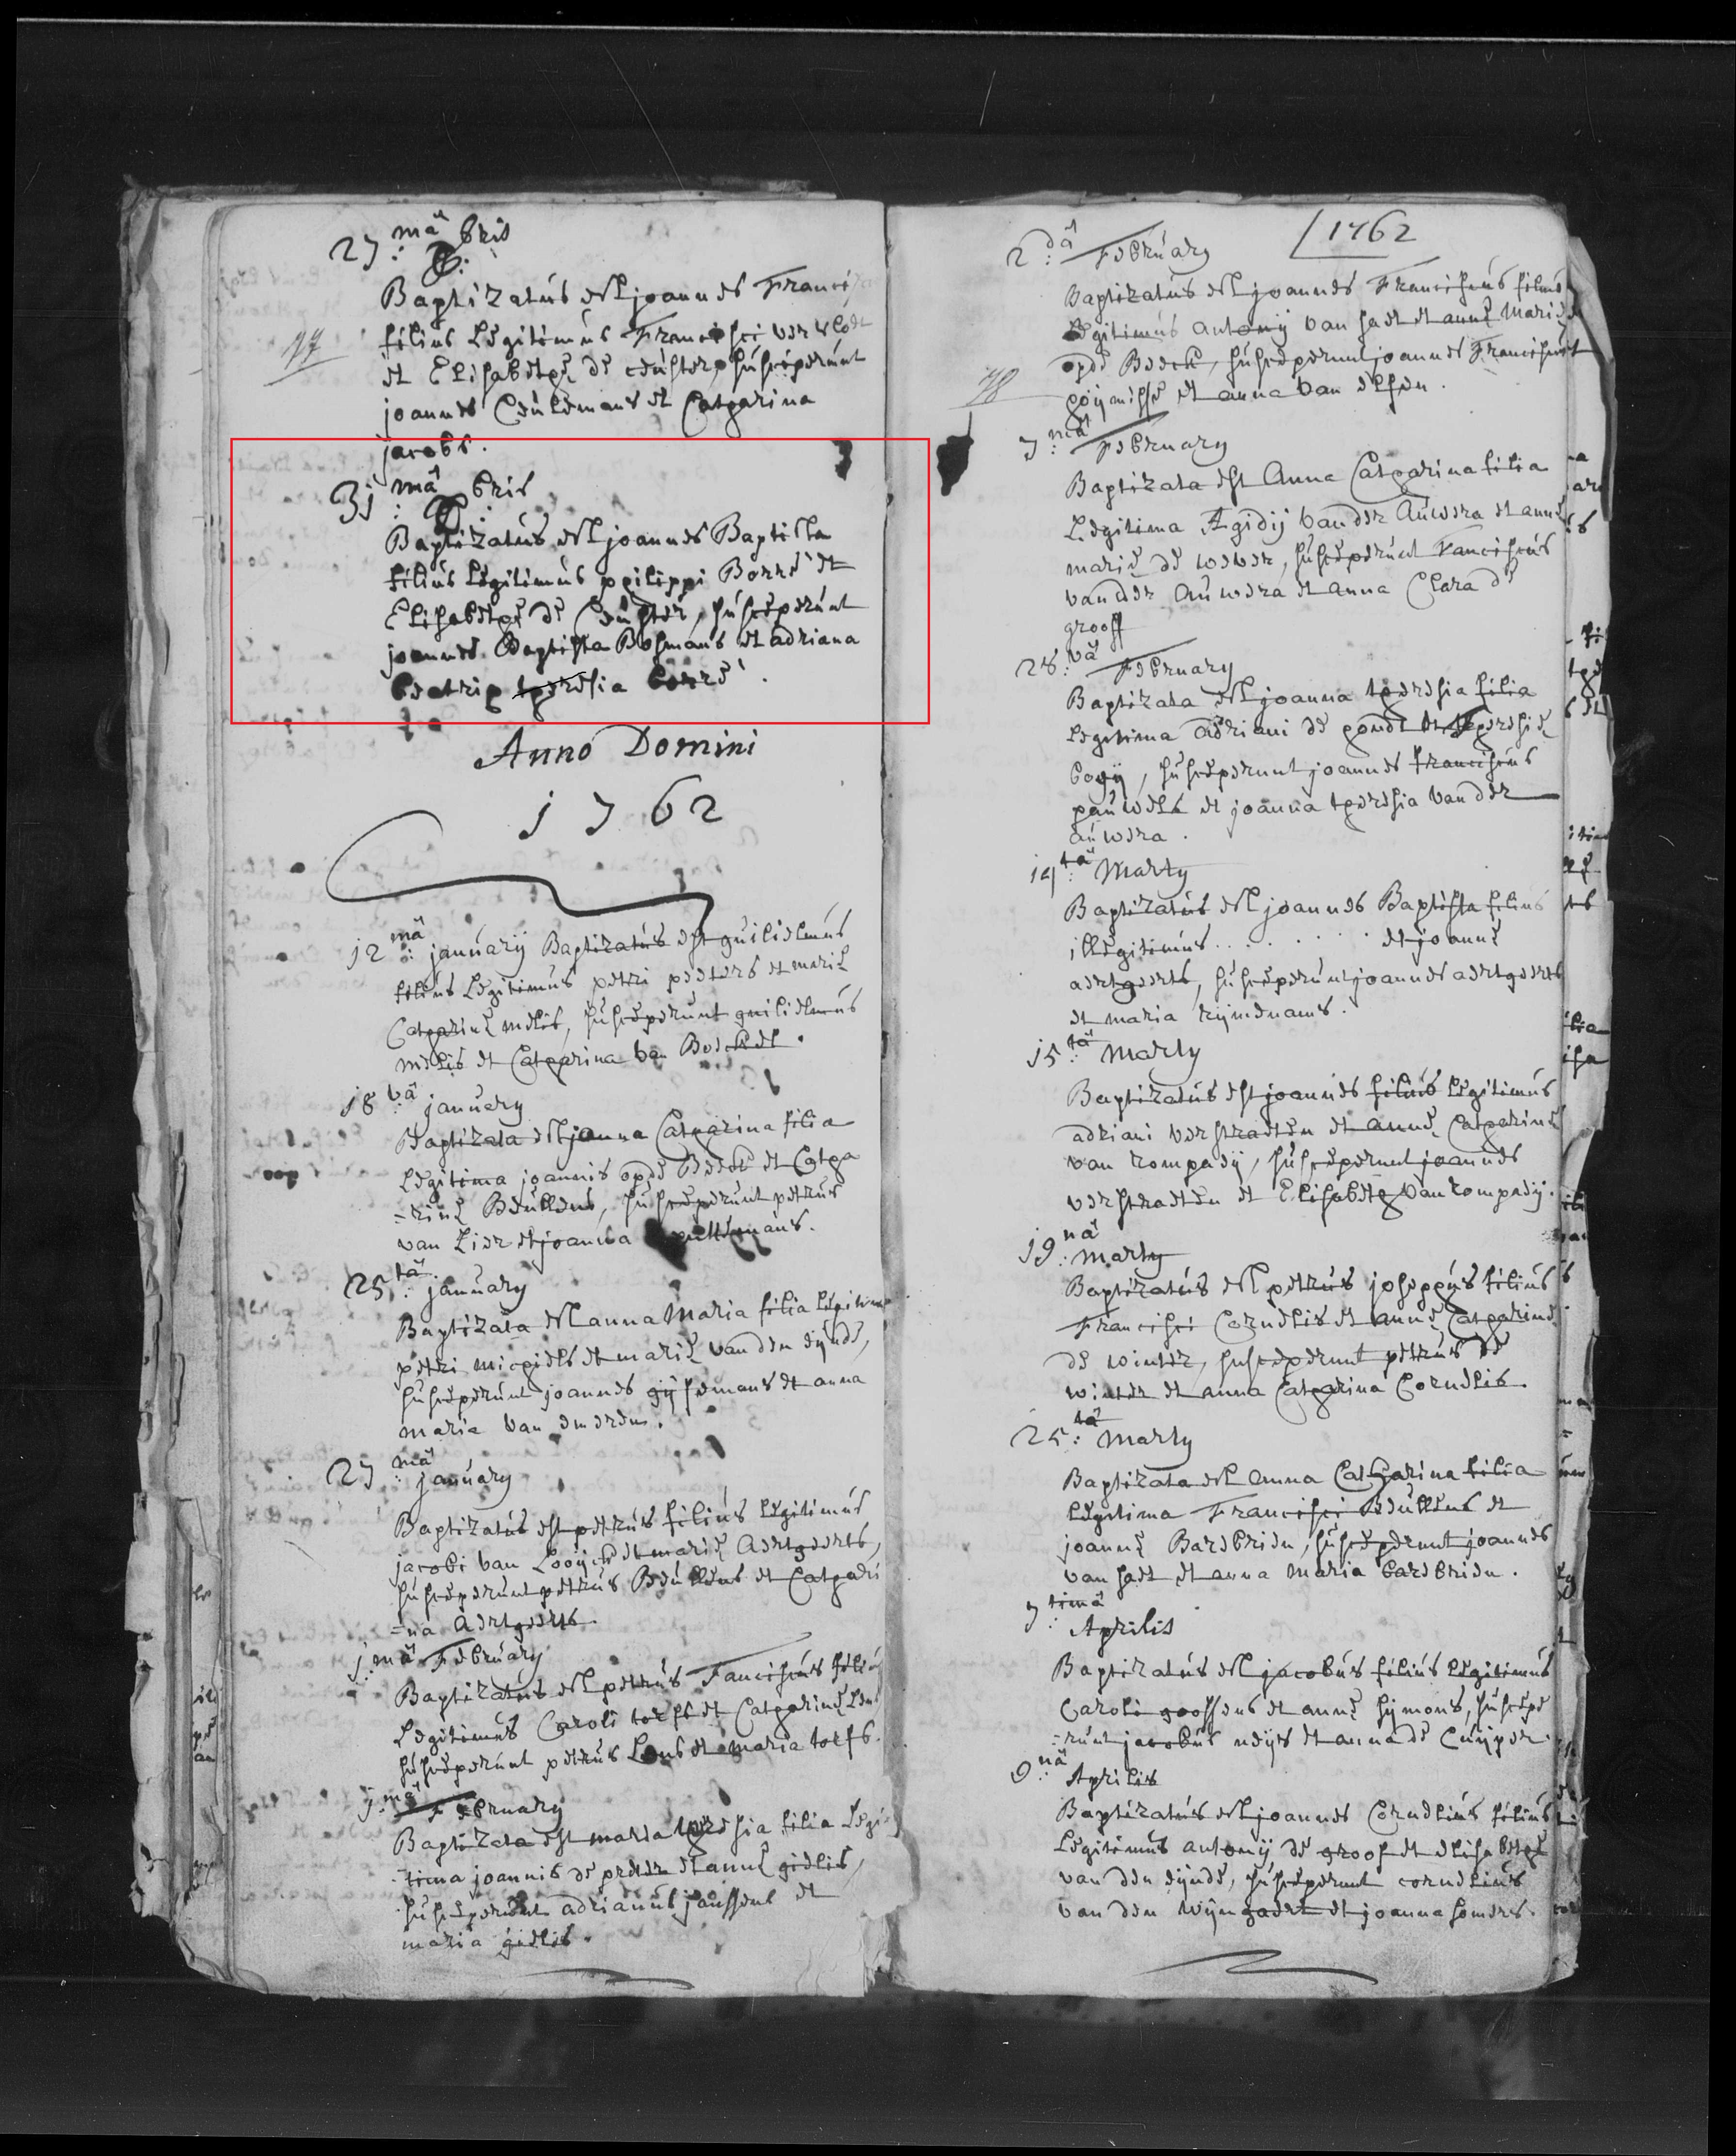 27 mâ : bris
X:
Baptizatús est joannes Franci
17
filius Legitimús Francisci
et Elisabethę de ceúster, súscéperúnt
joannes Ceúlemans et Catharina
jacobs.
31 mâ : bris
X.
Baptizatús est joannes Baptista
filiús Légitimús philippi Borré et
Elisabethę de Ceúster, súscéperúnt
joannes Baptista Bosmans et adriana
beatrix theresia borré.
Anno Domini
1762
12 mâ : janúarÿ Baptizatús est guilielmús
filiús Legitimús petri peeters et marię
Catharinę melis, súscéperúnt guilielmús
melis et Catharina van
18 vâ : janúary
Baptizata est joanna Catharina filia
Legitima joannis opde Beeck et Catha
=rinę Beúllens, súscéperúnt petrús
van Lier et joanna
25 tâ : janúary
Baptizata est anna Maria filia Legitima
petri michiels et marię vanden eÿnde,
súscéperúnt joannes gÿsemans et anna
maria van
27 mâ : janúary
Baptizatús est petrús filiús Légitimús
jacobi van Looÿ et marię Aertgeerts,
súscéperúnt petrús Beúllens et Cathari
=na Aertgeerts.
1 mâ : Febrúary
Baptizatús est petrús Fanciscús filiús
Legitimús Caroli torfs et Catharinę Lens
súscéperúnt petrús Lens et maria torfs.
mâ : Február
Baptizata est maria theresia filia Legi
=tima joannis de preter et annę gielis,
súscéperúnt adrianús janssens et
maria gielis.
1762
2 dâ : Febrúary
Baptizatús est joannes Franciscús filiús
Legitimús antonÿ van et annę Marię
opde Beeck, súscéperunt joannes Franciscús
et anna van elsen.
78
7 mâ : February
Baptizata est Anna Catharina filia
Legitima Ægidÿ vander Aúwera et annę
marię de wever, súscéperúnt Fanciscús
vander Aúwera et anna Clara de
grooff
28 vâ : February
Baptizata est joanna theresia filia
Legitima Adriani de hondt et theresię
súscéperunt joannes franciscús
paúwels et joanna theresia vander
aúwera.
14 tâ : Marty
Baptizatús est joannes Baptista filiús
illégitimús . . . . . . . et joannę
aertgeerts, súscéperúnt joannes aertgeerts
et maria rymenams.
15 tâ : Marty
Baptizatús est joannes filiús Légitimús
adriani verstraeten et annę Catharinę
van rompaeÿ, súscéperunt joannes
verstraeten et Elisabeth van rompaeÿ.
19 nâ : marty
Baptizatús est petrús josephús filiús
Francisci Cornelis et annę Catharinę
de winter, suscéperunt petrús de
winter et anna Catharina Cornelis.
25 tâ : Marty
Baptizata est Anna Catharina filia
Légitima Francisci Beúllens et
joannę Barebrien, súscéperunt joannes
van et anna maria barebrien.
7 timâ : Aprilis
Baptizatús est jacobús filiús Légitimús
Caroli goossens et annę symons, súscépe
=rúnt jacobús neÿs et anna de Cuÿper.
9 nâ : Aprilis
Baptizatús est joannes Corneliús filiús
Légitimús antonÿ de groof et elisabethę
van den eÿnde, súscéperunt corneliús
van den Wÿngaert et joanna somers.